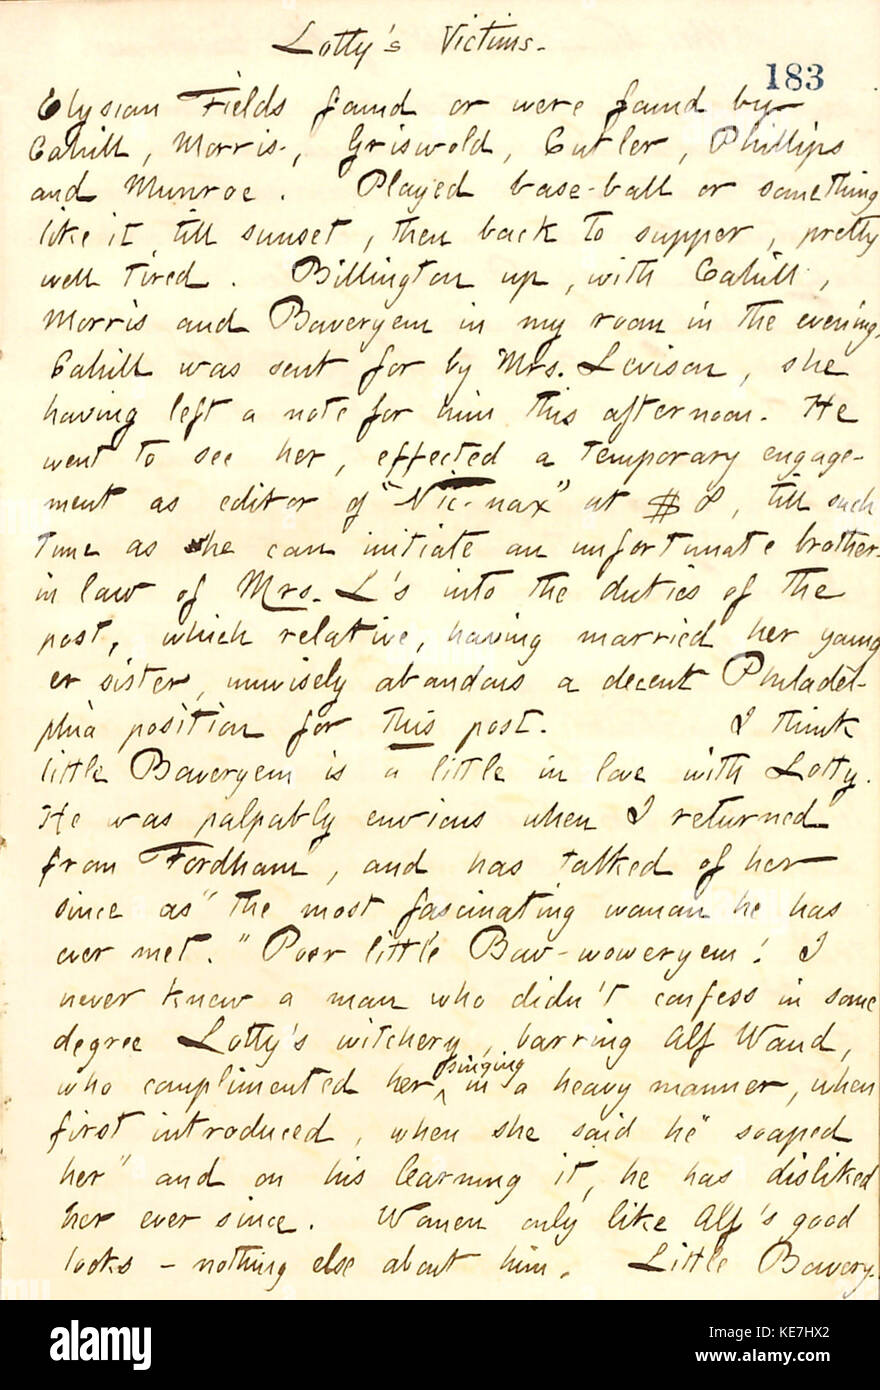 Lotty's Victims.
183
Elysian Fields found or were found by
Cahill, Morris, Griswold, Cutler, Phillips
and Munroe. Played base-ball or something
like it till sunset, then back to supper, pretty
well tired. Billington up, with Cahill,
Morris and Baweryem in my room in the evening.
Cahill was sent for by Mrs. Levison, she
having left a note for him this afternoon. He
went to see her, effected a temporary engage-
ment as editor of "Nic-nax" at $8, till such
time as he can initiate an unfortunate brother-
in law of Mrs. L's into the duties of the
post, which relative, having married her young
er sister, unwisely abandons a decent Philadel-
phia position for this post. I think
little Baweryem is a little in love with Lotty.
He was palpably envious when I returned
from Fordham, and has talked of her
since as "the most fascinating woman he has
ever met." Poor little Baw-woweryem! I
never knew a man who didn't confess in some
degree Lotty's witchery, barring Alf Waud,
who complimented her singing in a heavy manner, when
first introduced, when she said he "soaped
her" and on his learning it, he has disliked
her ever since. Women only like Alf's good
looks — nothing else about him. Little Bawery-
alamy
Image ID: KE7HX2
www.alamy.com